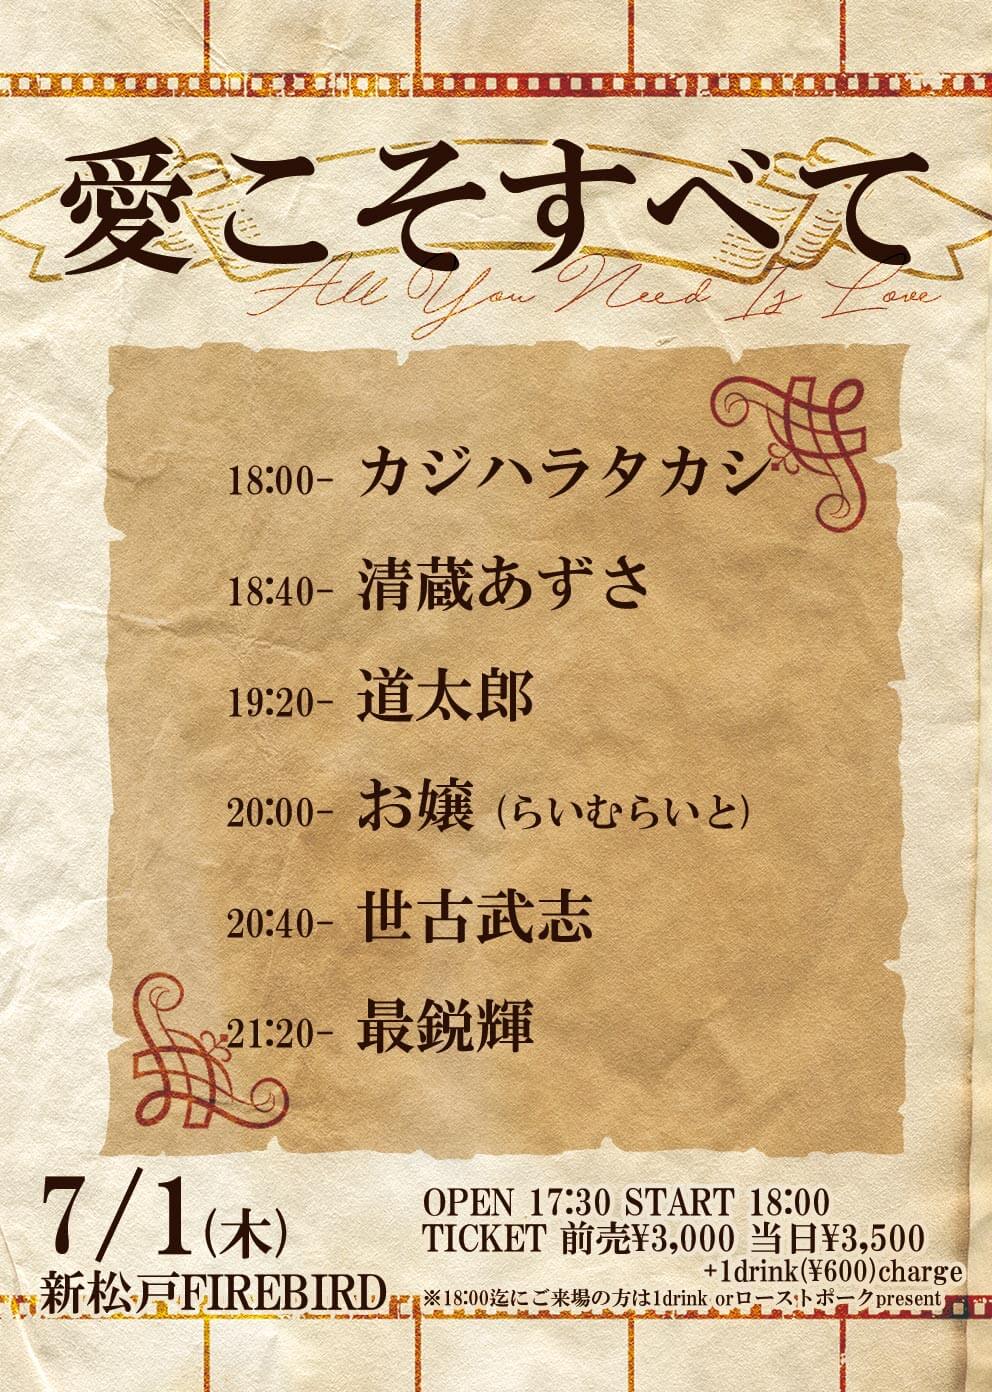 愛こそすべて
All You Need Is Love
18:00- カジハラタカシ
18:40- 清蔵あずさ
19:20- 道太郎
20:00- お嬢 (らいむらいと)
20:40- 世古武志
21:20- 最鋭輝
7/1(木)
新松戸FIREBIRD
OPEN 17:30 START 18:00
TICKET 前売¥3,000 当日¥3,500
+1drink(¥600)charge
※18:00迄にご来場の方は1drink orローストポークpresent